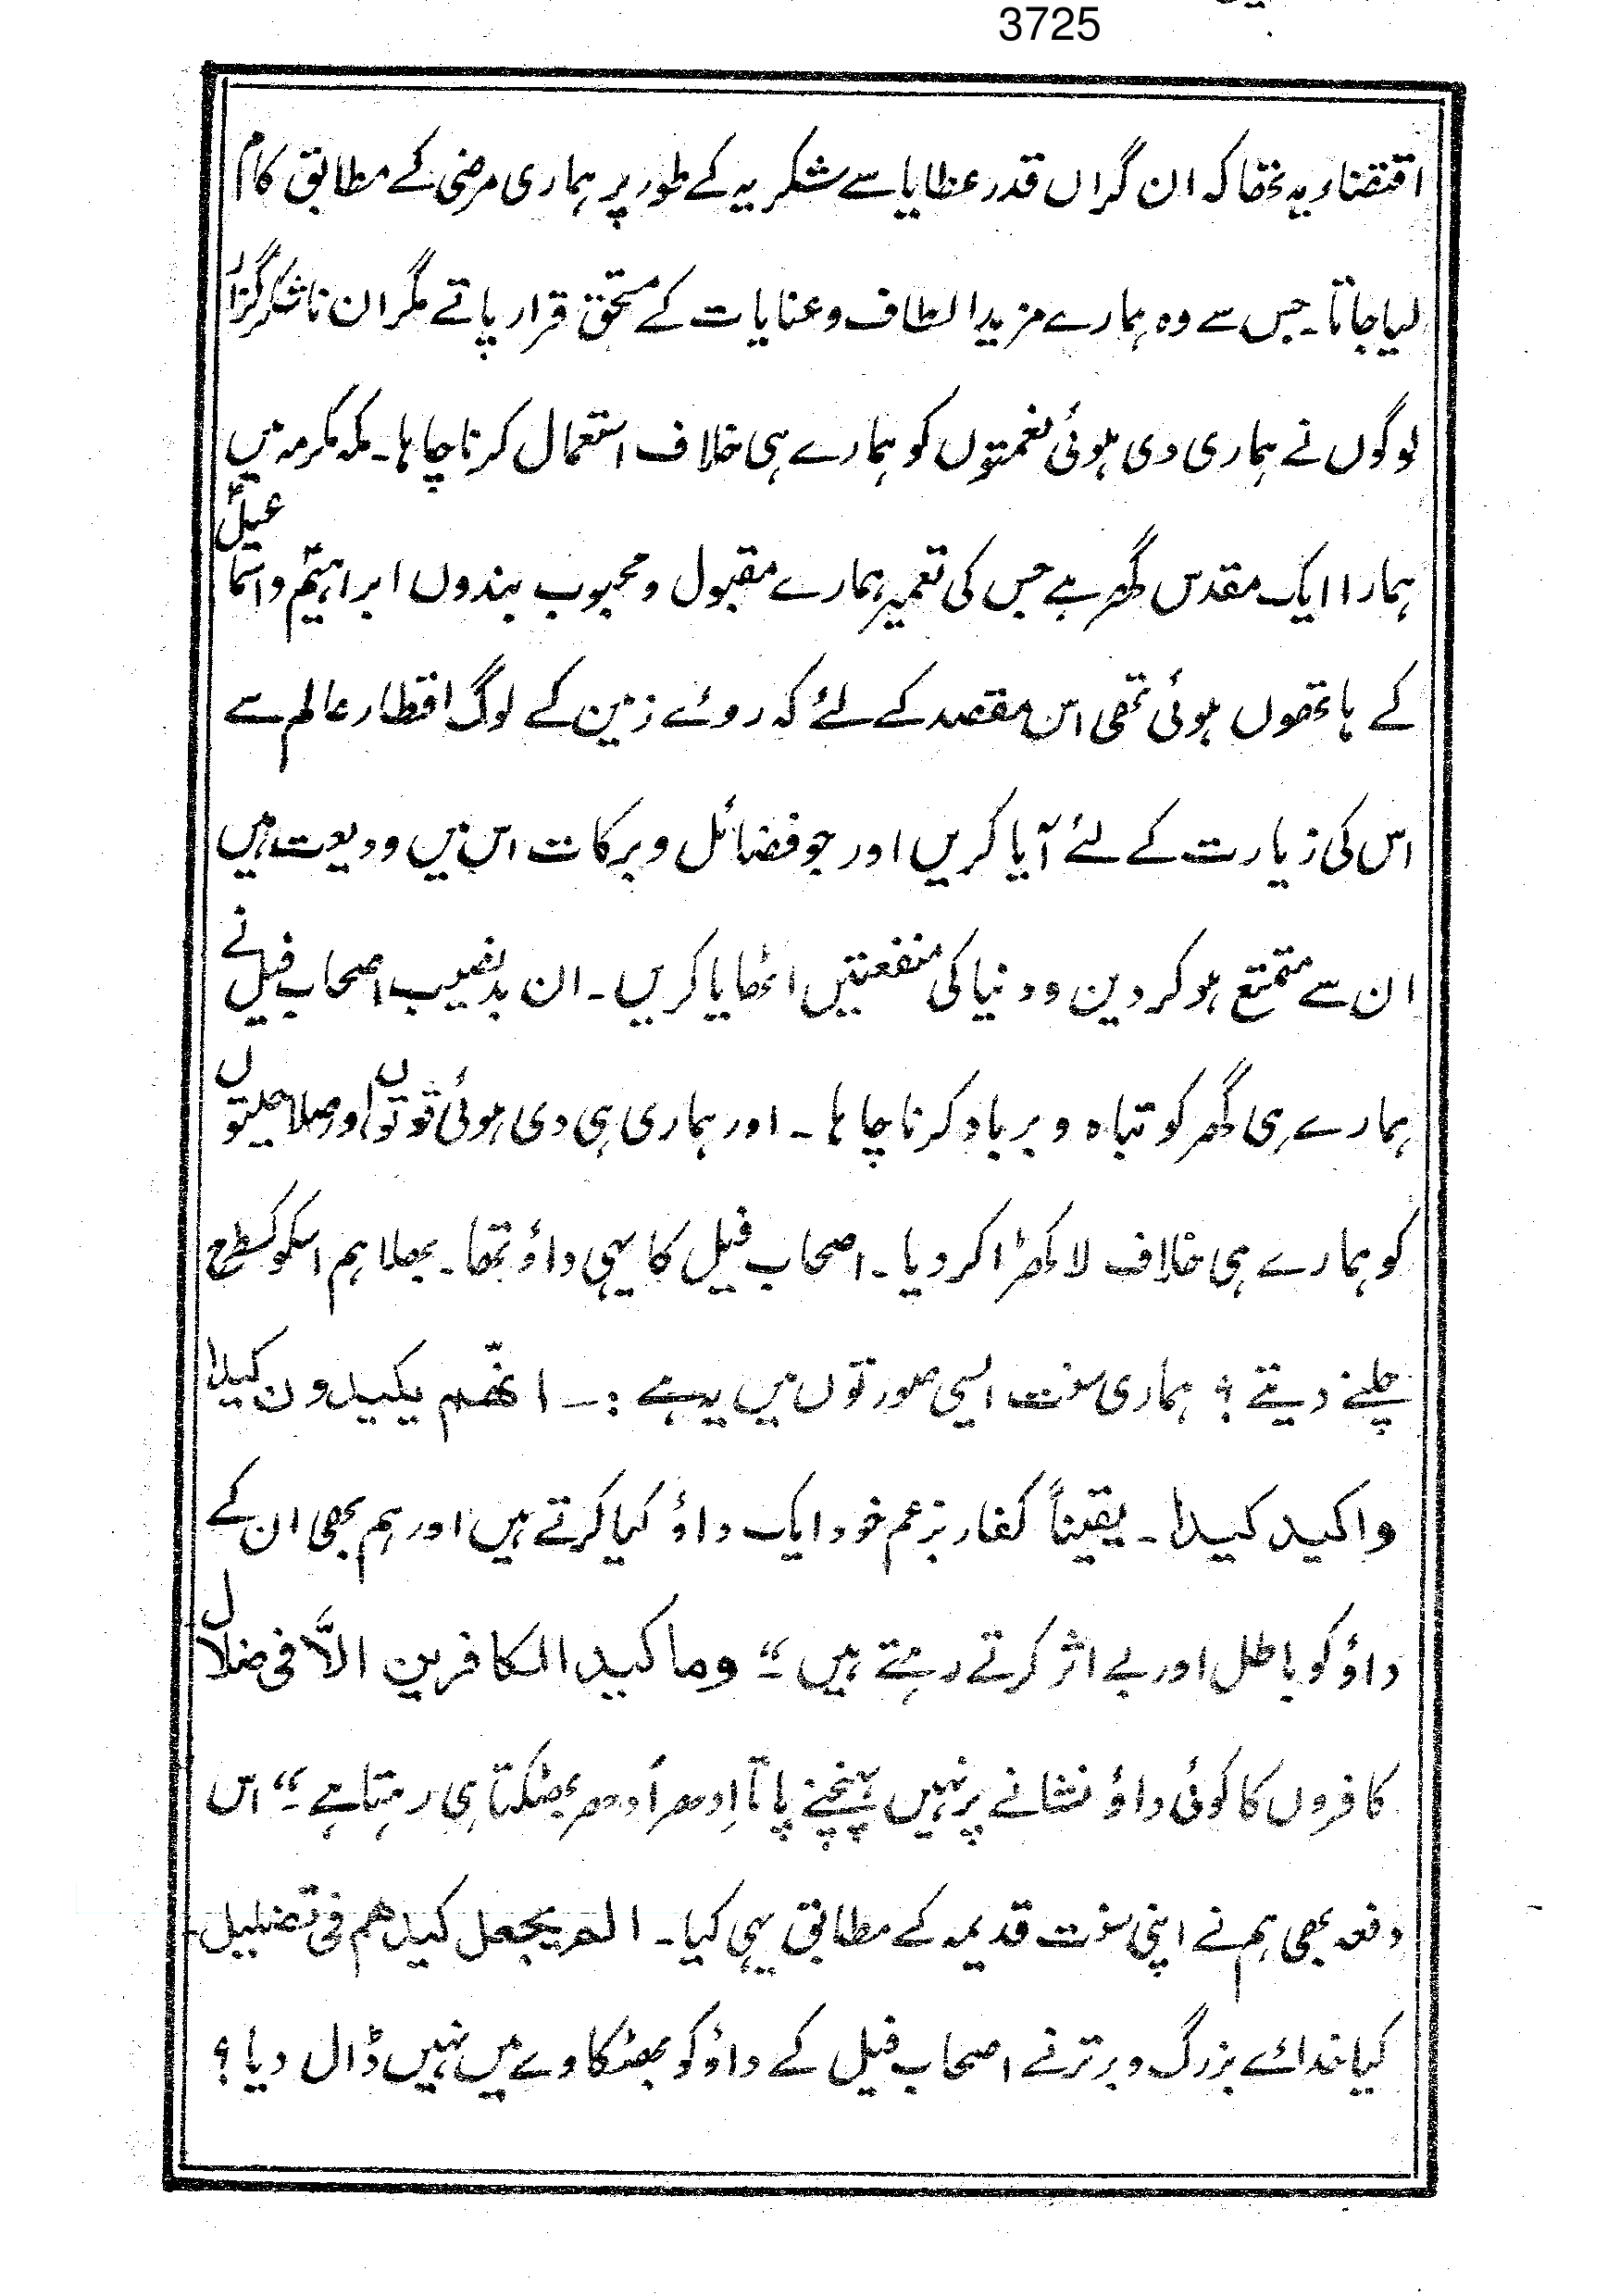 3725
اقتضاء یہ تھا کہ ان گراں قدر عطایا سے شکریہ کے طور پر ہماری مرضی کے مطابق کام
لیا جاتا۔ جس سے وہ ہمارے مزید الطاف و عنایات کے مستحق قرار پاتے مگر ان ناشکرگزار
لوگوں نے ہماری دی ہوئی نعمتوں کو ہمارے ہی خلاف استعمال کرنا چاہا۔ مکہ مکرمہ میں
ہمارا ایک مقدس گھر ہے جس کی تعمیر ہمارے مقبول و محبوب بندوں ابراہیمؑ و اسماعیلؑ
کے ہاتھوں ہوئی تھی اس مقصد کے لئے کہ روئے زمین کے لوگ اقطار عالم سے
اس کی زیارت کے لئے آیا کریں اور جو فضائل و برکات اس میں ودیعت ہیں
ان سے متمتع ہو کر دین و دنیا کی منفعتیں اٹھایا کریں۔ ان بدنصیب اصحاب فیل نے
ہمارے ہی گھر کو تباہ و برباد کرنا چاہا ۔ اور ہماری ہی دی ہوئی قوتوں اور صلاحیتوں
کو ہمارے ہی خلاف لا کھڑا کر دیا۔ اصحاب فیل کا یہی داؤ تھا۔ بھلا ہم اسکو کسطرح
چلنے دیتے ؟ ہماری سنت ایسی صورتوں میں یہ ہے :۔ انھّم یکیدون کیدا
واکید کیدا۔ یقیناً کفار بزعم خود ایک داؤ کیا کرتے ہیں اور ہم بھی ان کے
داؤ کو باطل اور بے اثر کرتے رہتے ہیں ۔“ وما کید الکافرین الاّ فی ضلال
کافروں کا کوئی داؤ نشانے پر نہیں پہنچنے پاتا اِدھر اُدھر بھٹکتا ہی رہتا ہے ۔“ اس
دفعہ بھی ہم نے اپنی سنت قدیمہ کے مطابق یہی کیا۔ الم یجعل کیدھم فی تضلیل۔
کیا خدائے بزرگ و برتر نے اصحاب فیل کے داؤ کو بھٹکاوے میں نہیں ڈال دیا ؟